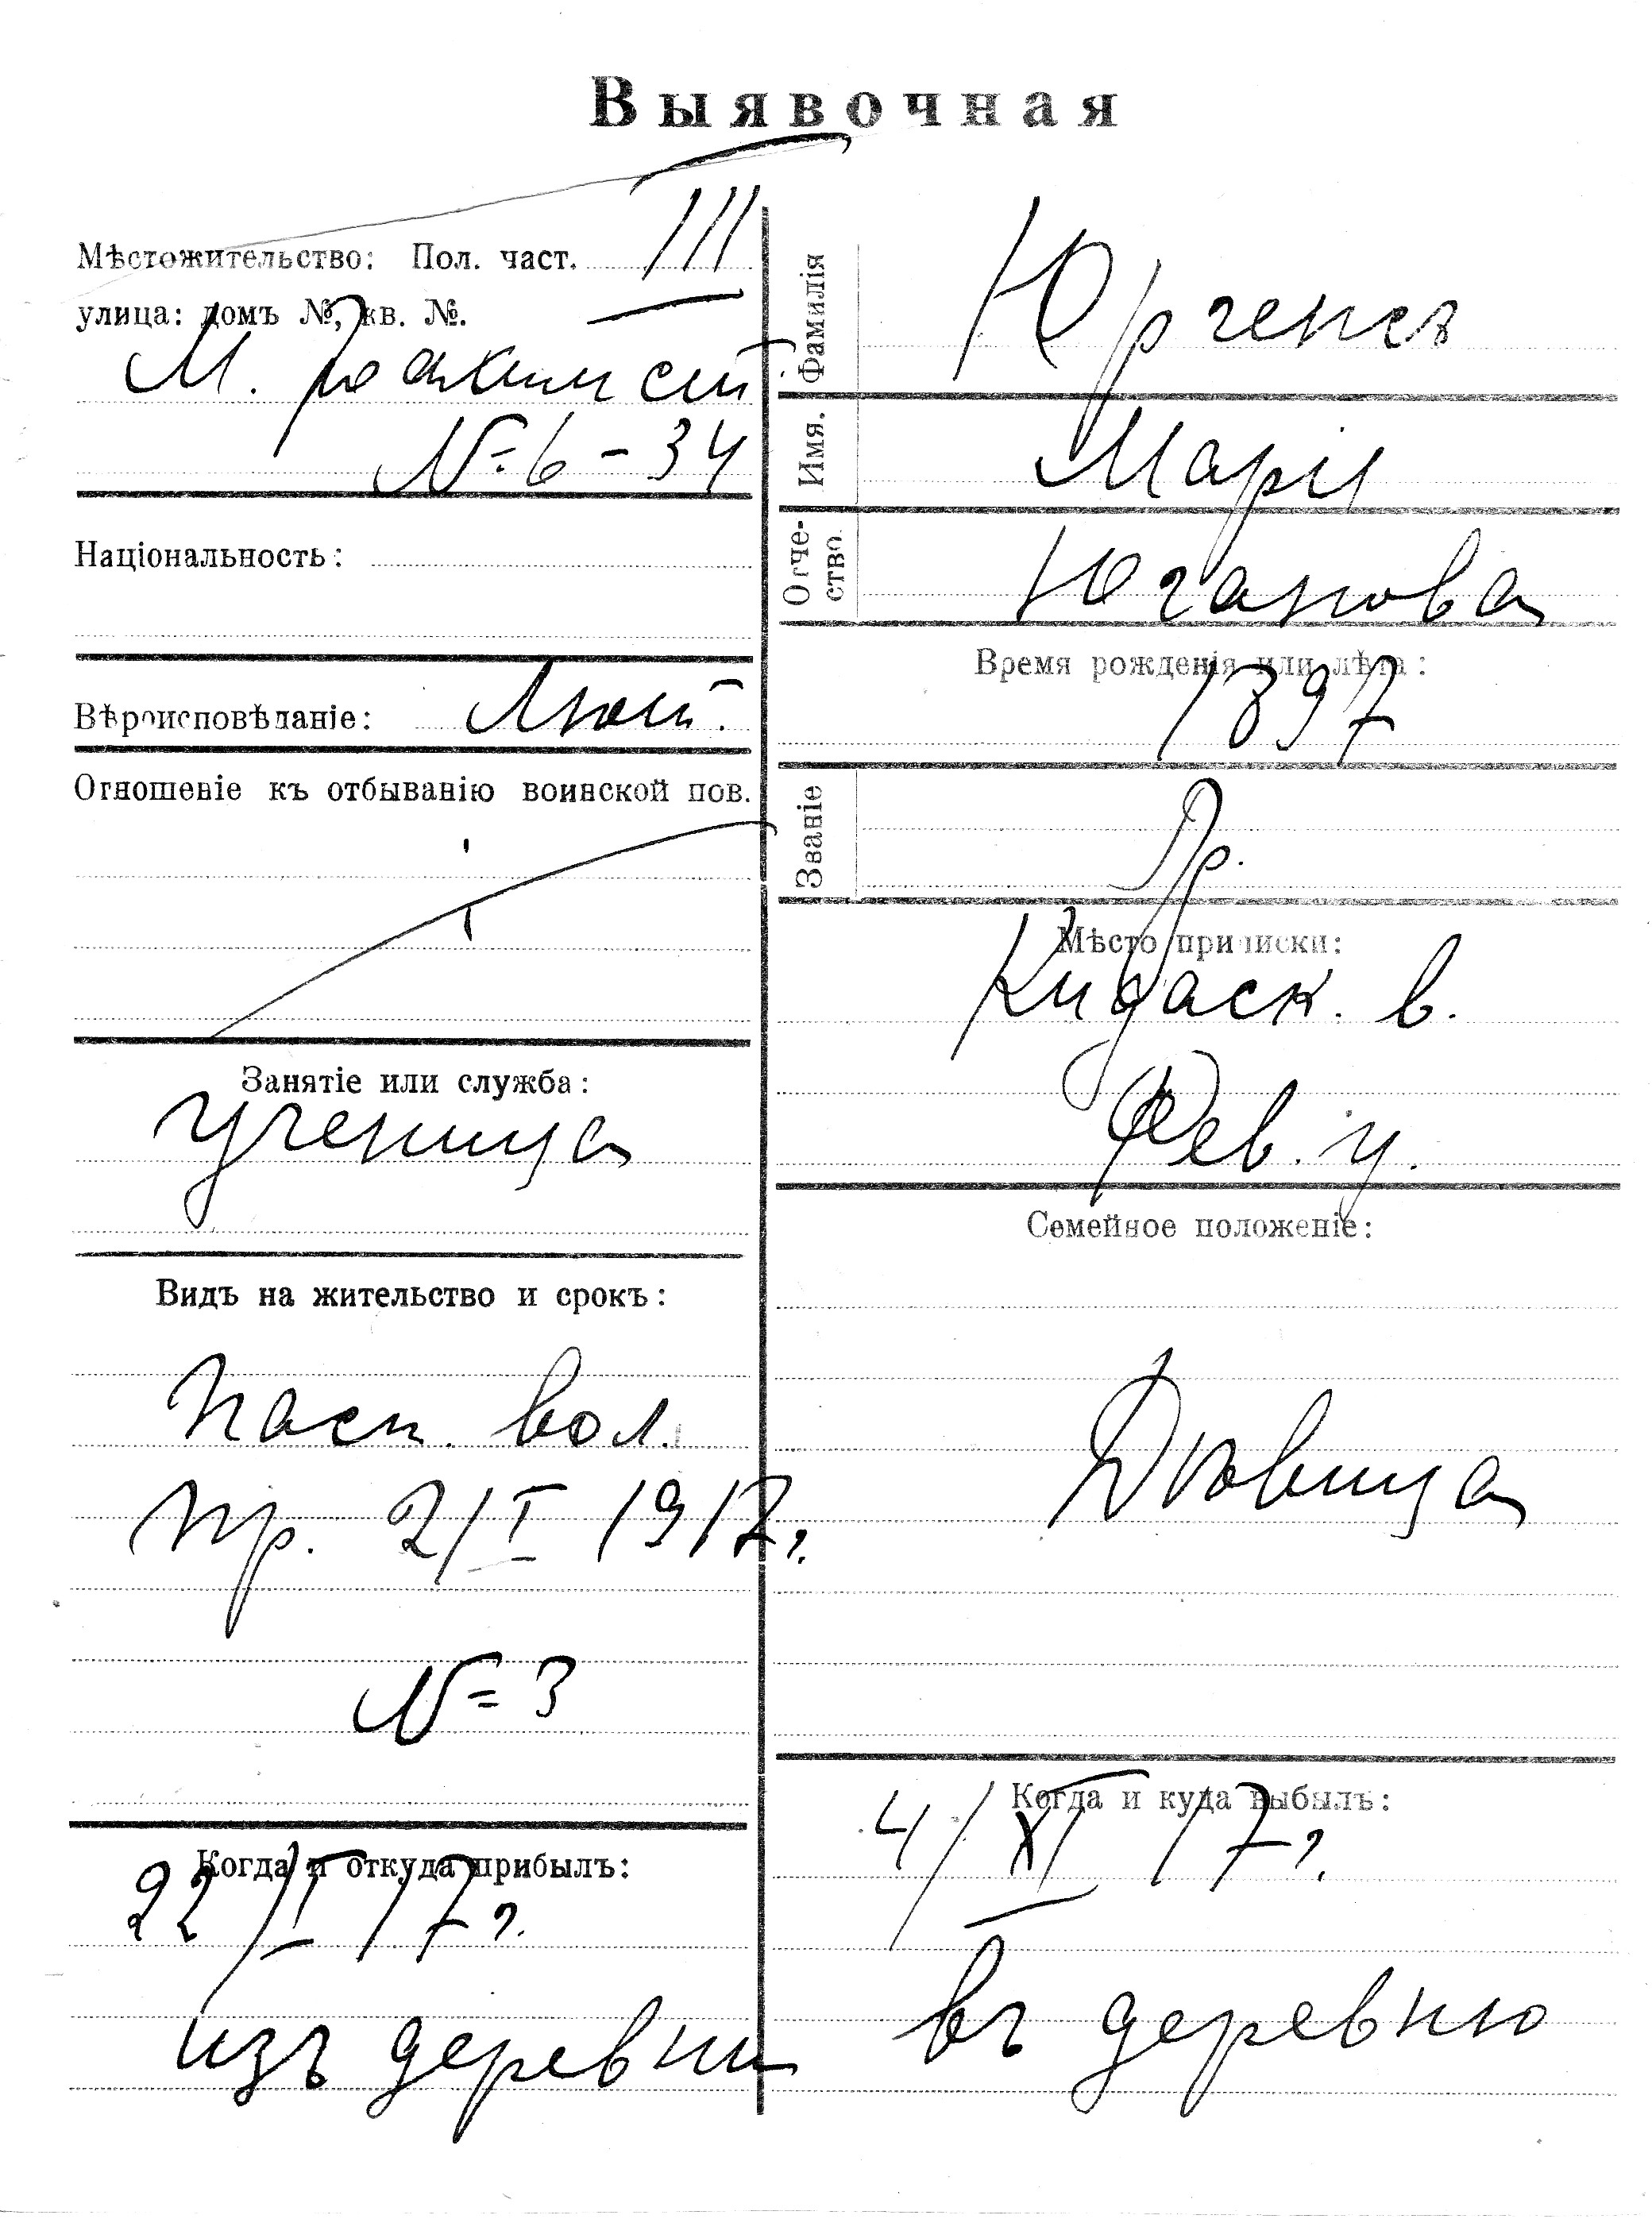 Выявочная
Мѣстожительство: Пол. част. III
улица: домъ №, кв. №.
М.
№ 6 - 34
Національность:
Вѣроисповѣданіе: Лют.
Отношеніе къ отбыванію воинской пов.
Занятіе или служба:
ученица
Видъ на жительство и срокъ:
Пасп. вол.
пр. 2/I 1917 г.
№ 3
Когда и откуда прибылъ:
22/I 17 г.
изъ деревни
Фамилія Юргенсъ
Имя. Марія
Отче-
ство. Юганова
Время рожденія или лѣта:
1897
Званіе Кр.
Мѣсто приписки:
в.
у.
Семейное положеніе:
Дѣвица
Когда и куда выбылъ:
4/XI 17 г.
въ деревню